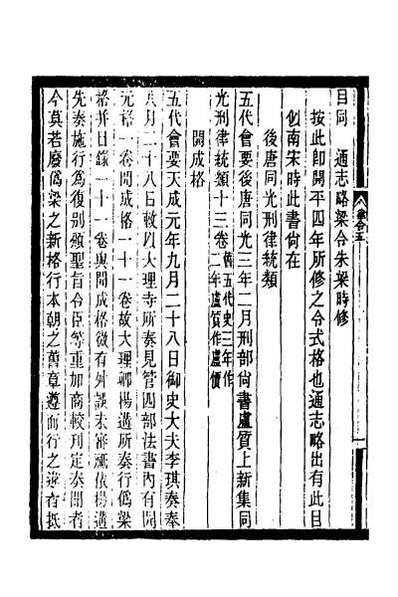 目同　通志略梁令朱梁時修
按此即開平四年所修之令式格也通志略出有此目
似南宋時此書尙在
後唐同光刑律統類
五代會要後唐同光三年二月刑部尙書盧質上新集同
光刑律統類十三卷舊五代史三年作二年盧質作盧價
開成格
五代會要天成元年九月二十八日御史大夫李琪奏奉
八月二十八日敕以大理寺所奏見管四部法書內有開
元格一卷開成格一十一卷故大理卿楊遘所奏行僞梁
格并目錄一十一卷與開成格微有舛誤未審祗依楊遘
先奏施行爲復別頒聖旨令臣等重加商較刊定奏聞者
今莫若廢僞梁之新格行本朝之舊章遵而行之違者抵